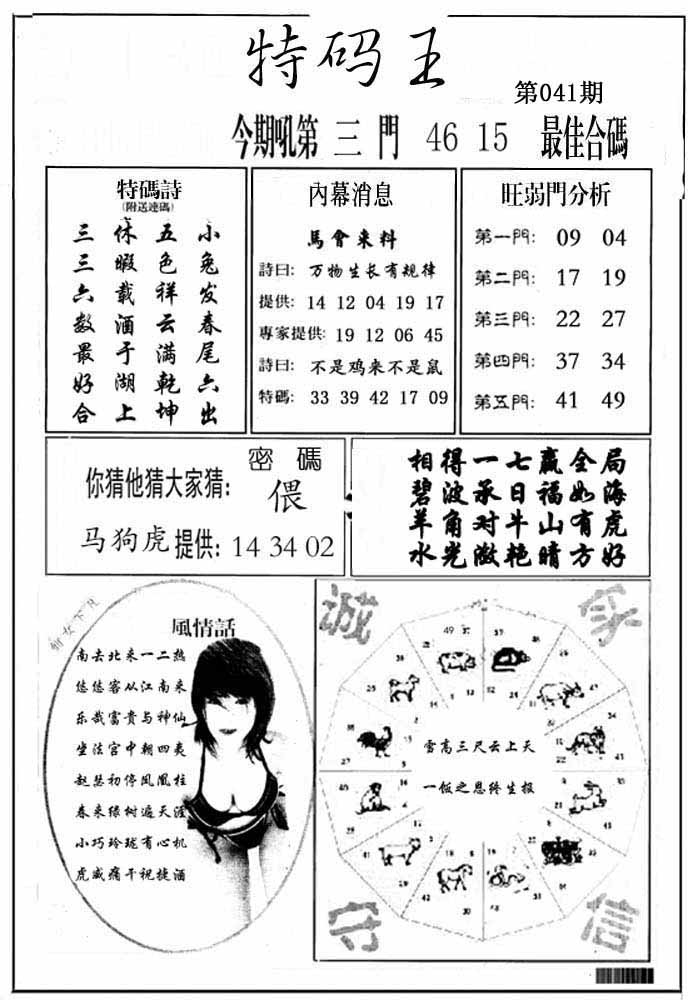 特码王
第041期
今期吼第 三 門 46 15 最佳合碼
特碼詩
(附送連碼)
小兔发春尾六出
五色祥云满乾坤
休暇载酒于湖上
三三六数最好合
內幕消息
馬會来料
詩曰: 万物生长有规律
提供: 14 12 04 19 17
專家提供: 19 12 06 45
詩曰: 不是鸡来不是鼠
特碼: 33 39 42 17 09
旺弱門分析
第一門: 09 04
第二門: 17 19
第三門: 22 27
第四門: 37 34
第五門: 41 49
密碼
你猜他猜大家猜: 偎
马狗虎提供: 14 34 02
相得一七赢全局
碧波承日福如海
羊角对牛山有虎
水光潋艳晴方好
女下凡
風情話
南去北来一二热
悠悠客从江南来
乐哉富贵与神仙
坐法宫中朝四夷
赵瑟初停凤凰柱
春来绿树遍天涯
小巧玲珑有心机
虎威痛干祝捷酒
诚
家
雪高三尺云上天
一饭之恩终生报
守
信